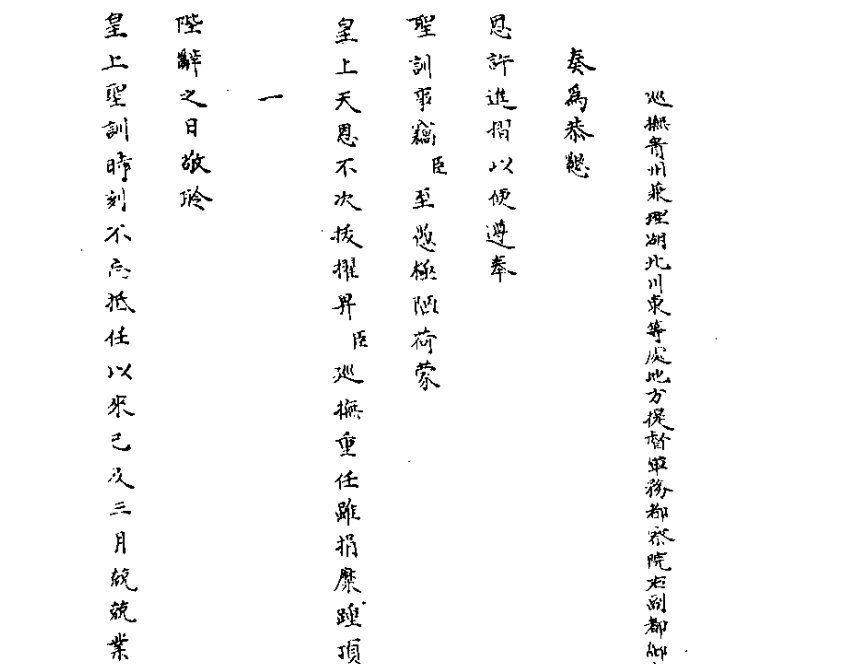 巡撫貴州兼理湖北川東等處地方提督軍務都察院右副都御
奏為恭懇
恩許進摺以便遵奉
聖訓事竊臣至愚極陋荷蒙
皇上天恩不次拔擢昇臣巡撫重任雖捐糜踵頂
一
陛辭之日敬聆
皇上聖訓時刻不忘抵任以來已及三月兢兢業